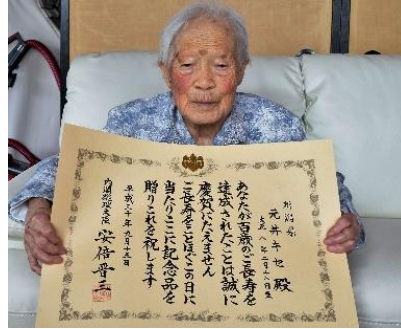 元井キセ 殿
大正八年二月十八日生
あなたが百歳のご長寿を
達成されたことは誠に
慶賀にたえません
ご長寿をことほぎこの日に
当たりここに記念品を
贈りこれを祝します
平成三十年九月十五日
内閣総理大臣 安倍晋三